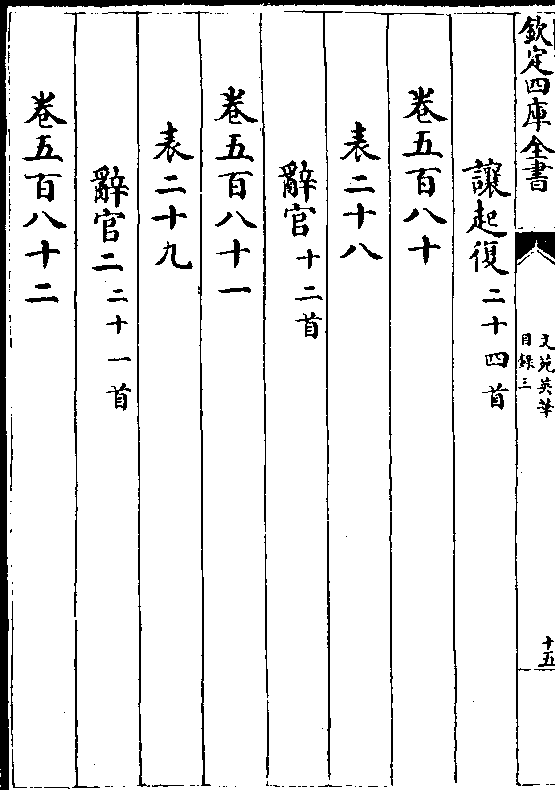 欽定四庫全書
文苑英華
目録三
十五
讓起復二十四首
卷五百八十
表二十八
辭官十二首
卷五百八十一
表二十九
辭官二二十一首
卷五百八十二